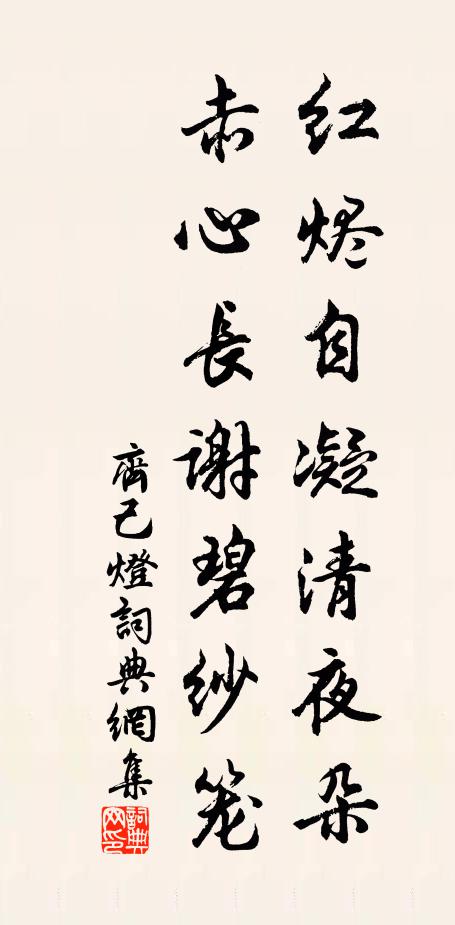 红烬自凝清夜朵
赤心長谢碧纱笼
齊己燈詞典網集
詞典網印